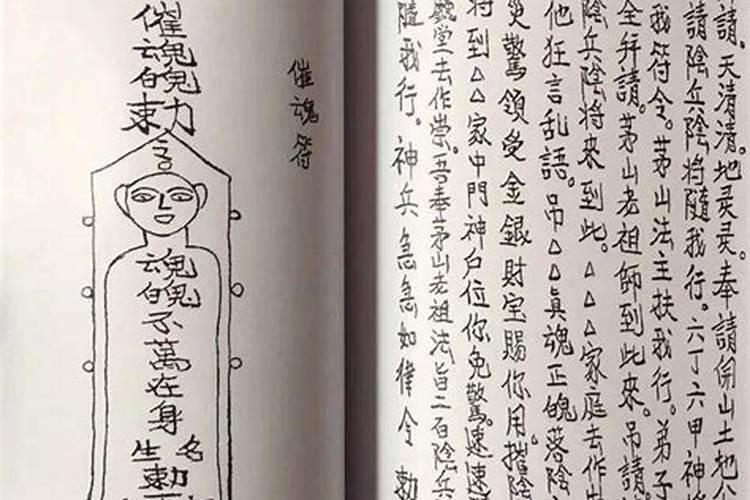 請。天清清。地灵灵。奉請開山土地公
請陰兵陰將隨我行。六丁六甲神將
我符令。茅山法主扶我行。弟子
全拜請。茅山老祖師到此來。吊請
陰兵陰将來到此。△△△家庭去作
他狂言乱語。吊△△真魂正魄落陰
災驚領受金銀財宝賜你用。摧陰
将到△△家中門神户位你免驚。速速
堂去作祟。吾奉茅山老祖法旨二百陰兵
隨我行。神兵急急如律令 勅
催魂符
催魂魄勅
魂魄不萬在身
名生
勅